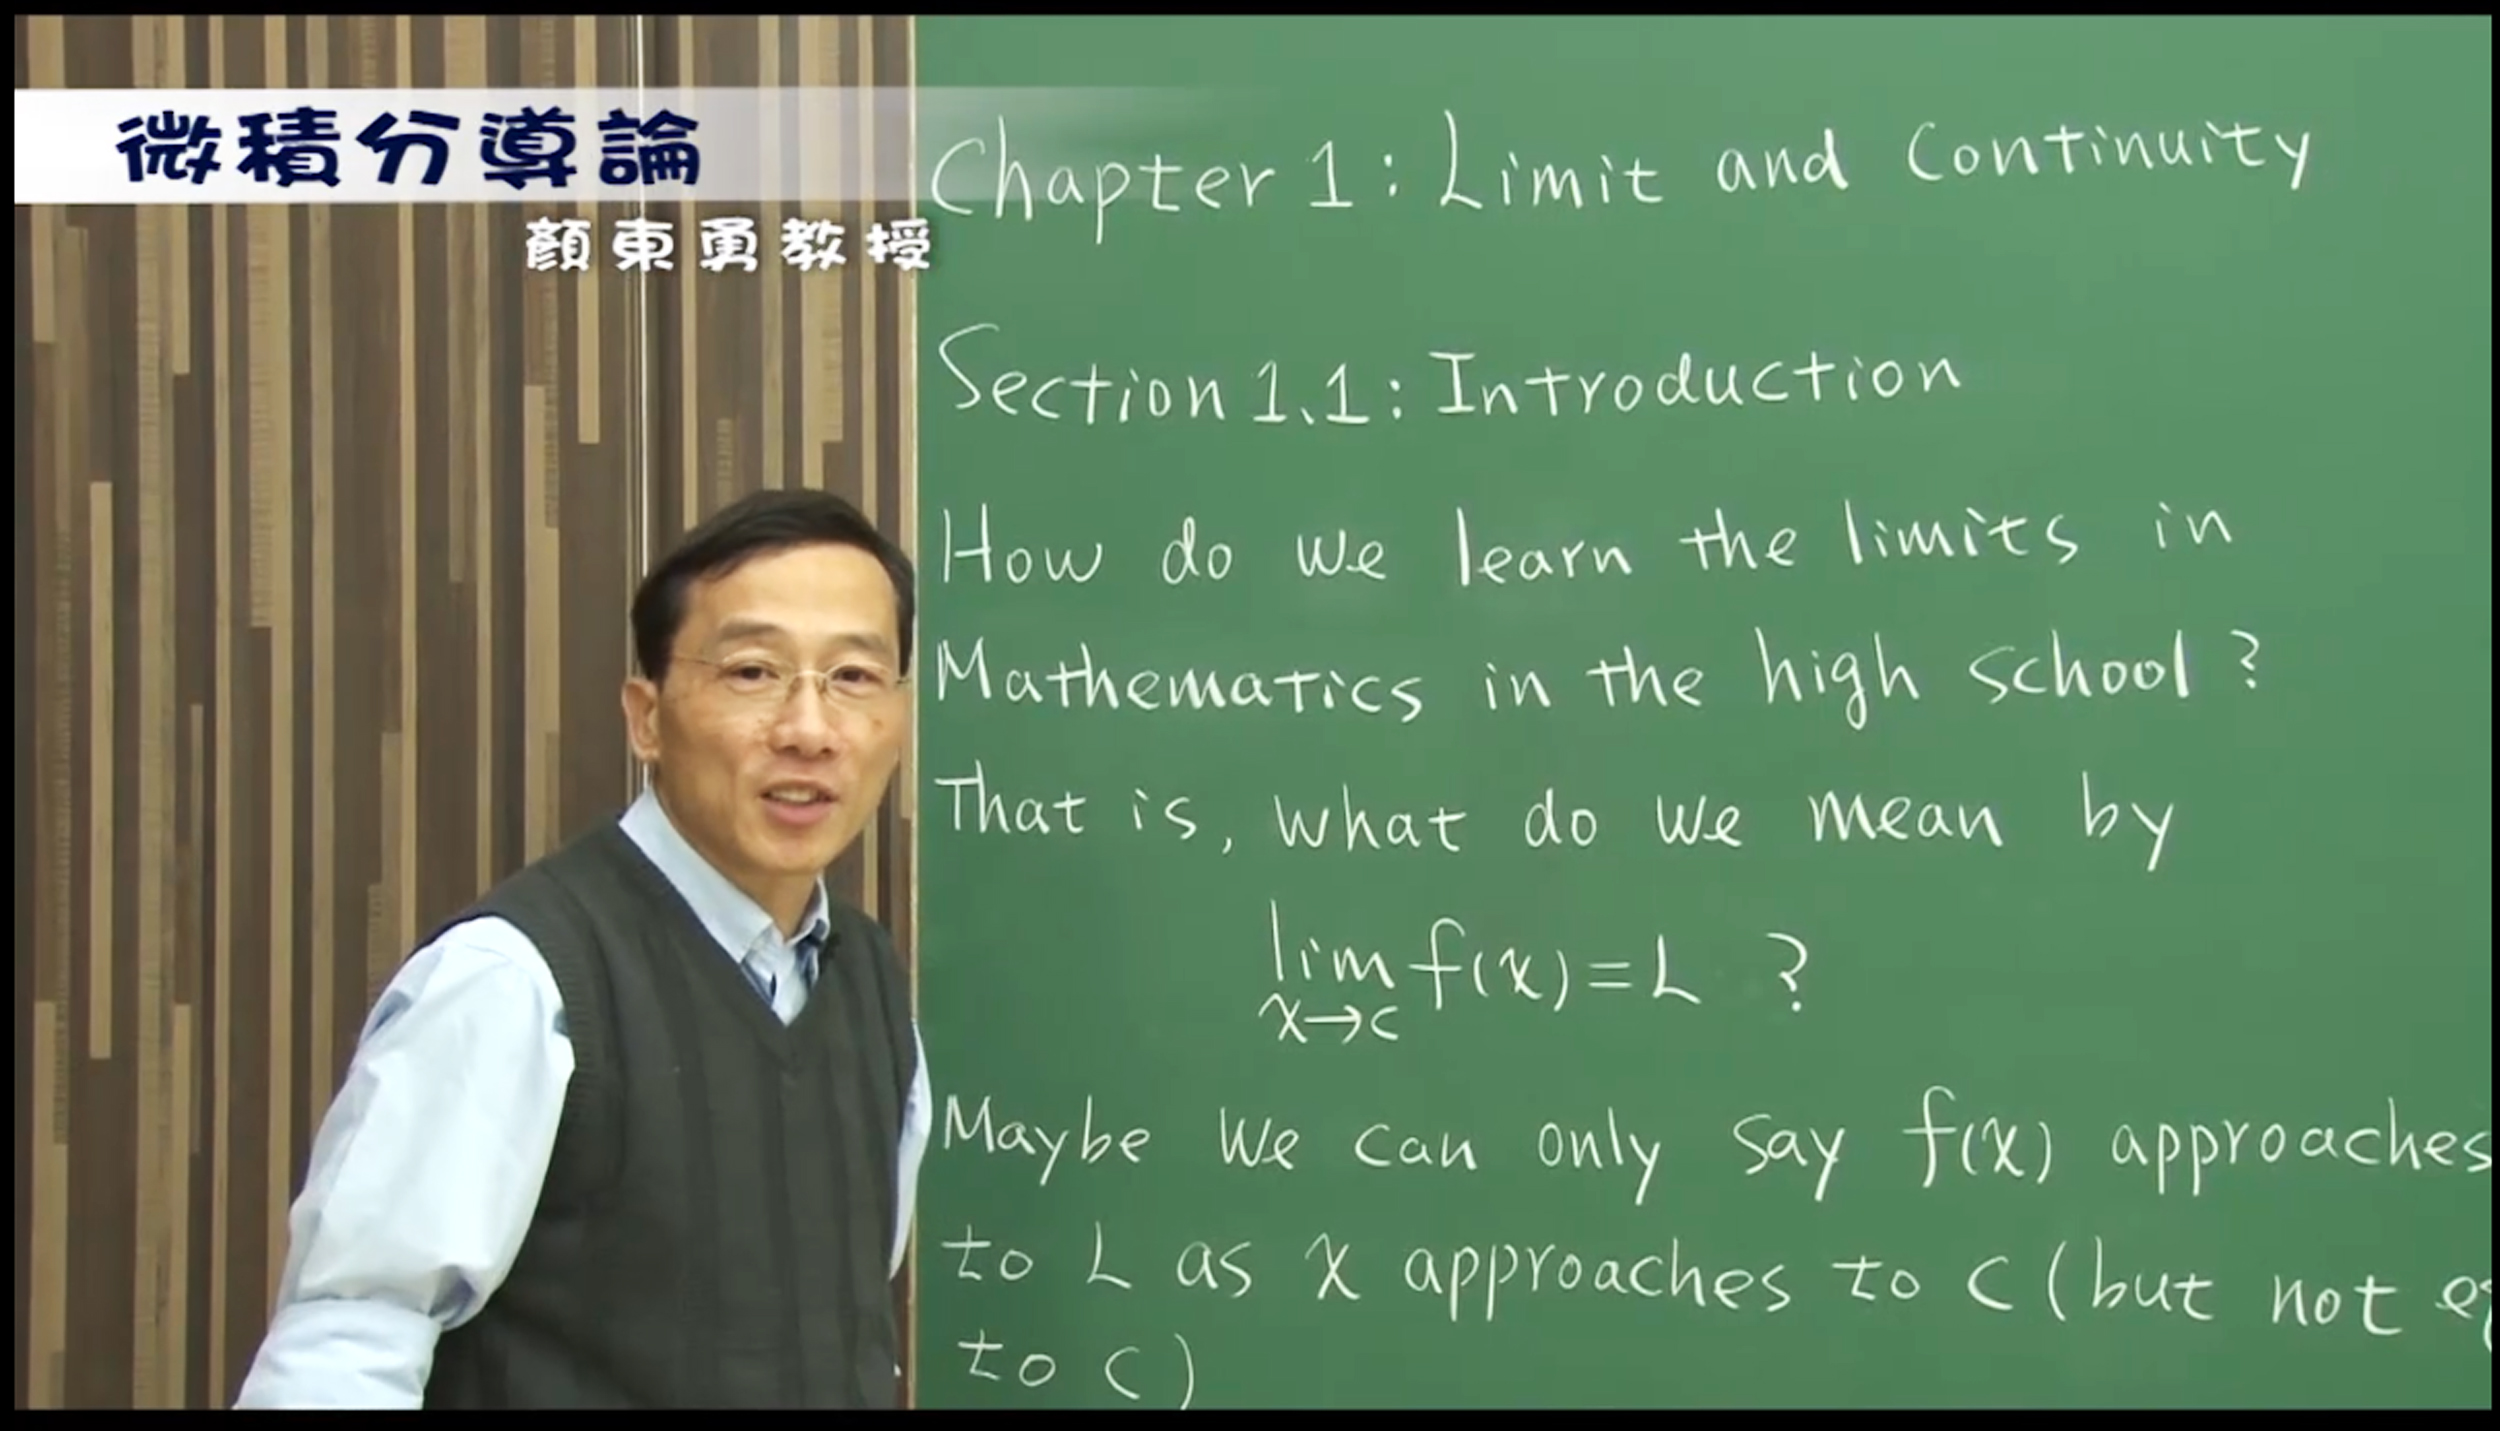 微積分導論
顏東勇教授
Chapter 1: Limit and Continuity
Section 1.1: Introduction
How do we learn the limits in
Mathematics in the high school?
That is, what do we mean by
lim f(x)=L ?
x→c
Maybe we can only say f(x) approaches
to L as x approaches to c (but not
to c)